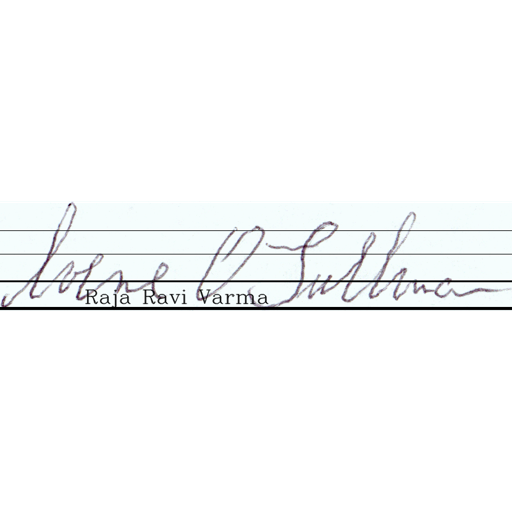 Irene O'Sullivan
Raja Ravi Varma